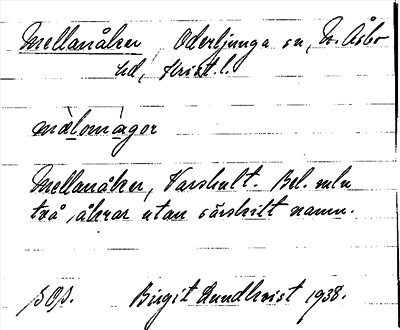 Mellanåker, Oderljunga sn, N. Åsbo
hd, Krist. l.
mälomagor
Mellanåker, Varshult. Bel. mln
två åkrar utan särskilt namn.
Birgit Lundkvist 1938.